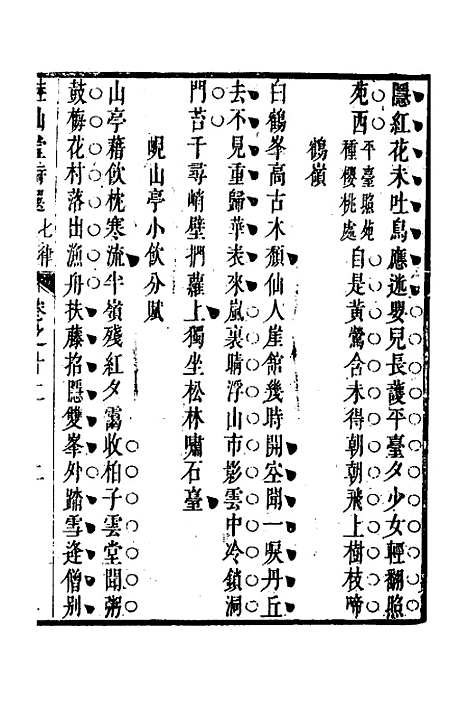 隱紅花未吐鳥應迷嬰兒長護平臺夕少女輕翻照
苑西平臺照苑種櫻桃處自是黃鶯含未得朝朝飛上樹枝啼
鶴嶺
白鶴峯高古木頹仙人崖館幾時開空聞一唳丹丘
去不見重歸華表來嵐裏晴浮山市影雲中冷鎖洞
門苔千尋峭壁捫蘿上獨坐松林嘯石臺
峴山亭小飲分賦
山亭藉飲枕寒流半嶺殘紅夕靄收柏子雲堂聞粥
鼓梅花村落出漁舟扶藤招隱雙峯外踏雪逢僧別
山堂詩選 七律 卷之十二 二